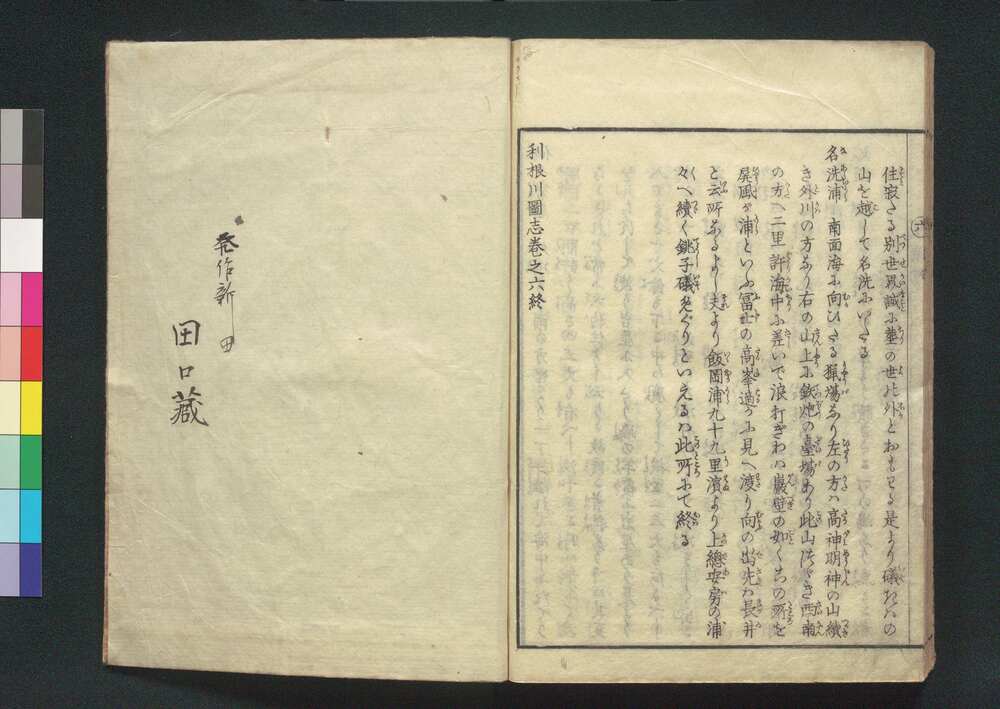 住寂たる別世界誠に塵の世の外とおもはる是より磯つたひの
山を越して名洗にいたる
名洗浦 南面海に向ひたる獵場なり左の方ハ高神明神の山續
き外川の方なり右の山上に鉄炮の臺場あり此山つゝき西南
の方へ二里許海中に差いで浪打ぎわハ巖壁の如くこの所を
屏風ヶ浦といふ冨士の高峯遥かに見へ渡り向の出先ハ長井
と云所なるよし夫より飯岡浦九十九里濱より上總安房の浦
々へ續く銚子磯めぐりといえるハ此所にて終る
利根川圖志巻之六終
発作新田
田口藏